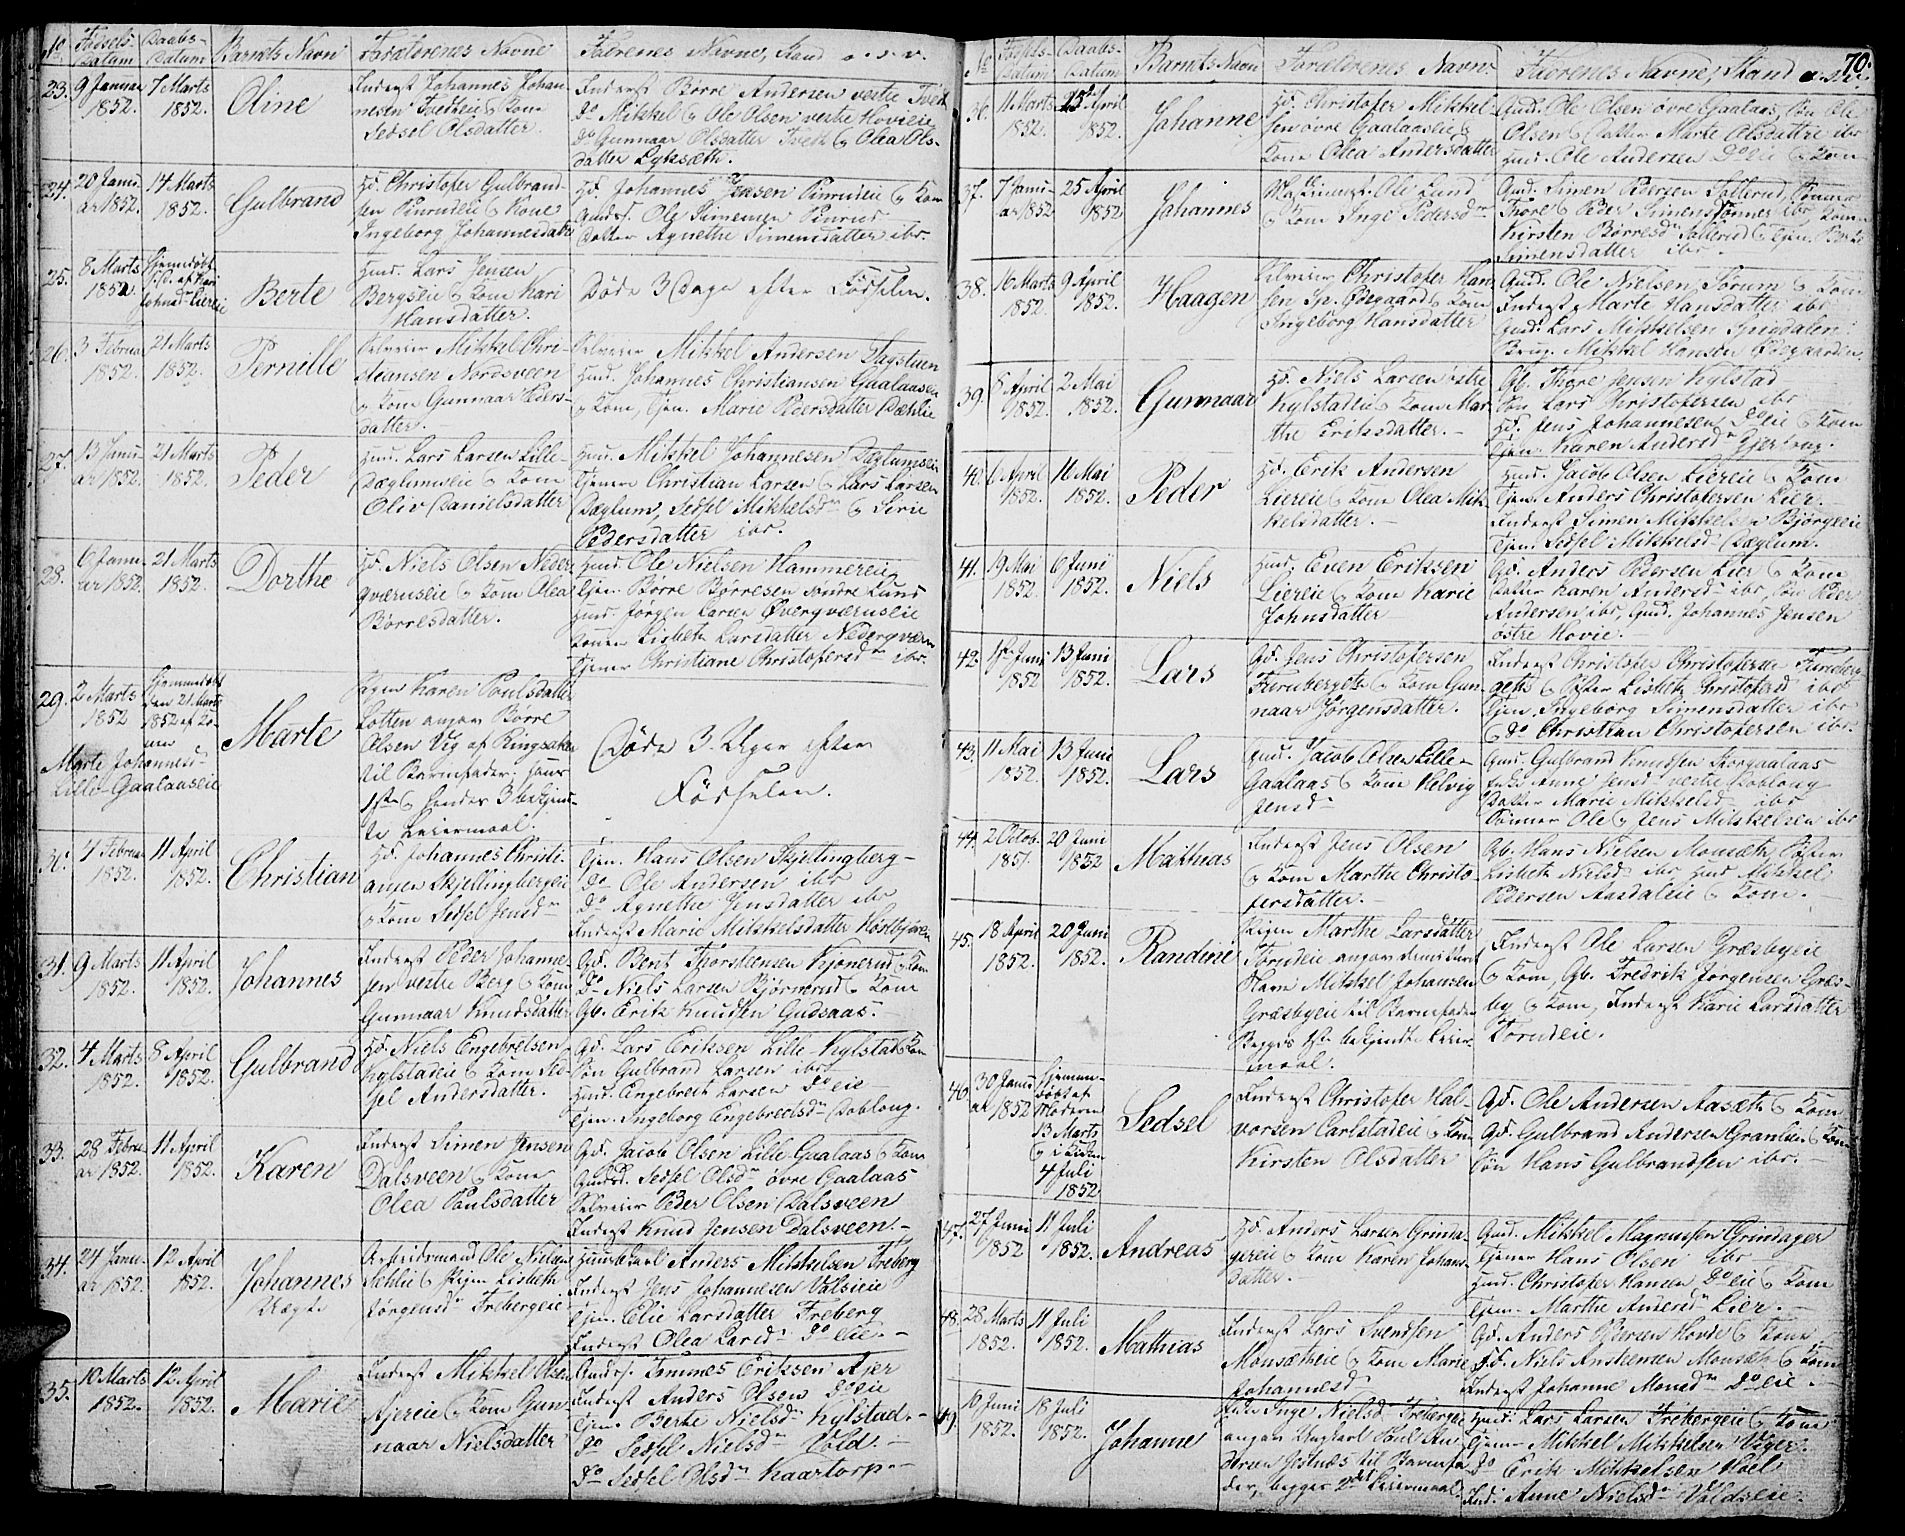 No Fødsels-Datum Daabs-Datum Barnets Navn Forældrenes Navne Faderenes Navne, Stand o.s.v.
23. 9 Januar 1852. 7 Marts 1852. Oline
Inderst Johannes Johan-
nesen Tvedteie & Kone
Sedsel Olsdatter.
Inderst Børre Andersen vestre Tvet
Do Mikkel & Ole Olsen vestre Hovieie
Do Gunnaar Olsdatter Tveth & Olea Ols-
datter Lyksæth.
24. 20 Janu-ar 1852. 14 Marts 1852. Gulbrand
Hd. Christofer Gulbrand-
sen Pinrudeie & Kone
Ingeborg Johannesdatter
Hd. Johannes Jensen Pinrudeie & Kone
Gaards. Ole Simensen Pinrud
Datter Agnethe Simensdatter ibr.
25. 8 Marts 1852 Hjemmedøbt Berte
Huus. Lars Jensen
Bergseie & Kone Kari
Hansdatter.
Døde 3 Dage efter Fødselen.
26. 3 Februa 1852. 21 Marts 1852. Pernille
Selveier Mikkel Chri-
stiansen Nordsveen
& Kone Gunnaar Peders-
datter.
Selveier Mikkel Andersen Dagstuen
Huus. Johannes Christiansen Gaalaaseie
& Kone, Tjen. Marie Pedersdatter Dæhlie
27. 13 Janu-ar 1852. 21 Marts 1852. Peder
Huus. Lars Larsen Lille-
Dæglumseie & Kone
Oliv Danielsdatter
Huus. Mikkel Johannesen Dæglumseie
Tjener Christian Larsen & Lars Larsen
Dæglum, Sedsel Mikkelsd. & Siri
Pedersdatter ibr.
28. 6 Janu-ar 1852. 21 Marts 1852. Dorthe
Hd. Niels Olsen Neder-
qværnseie & Kone Olea
Børresdatter.
Huus. Ole Nielsen Hammereie
Tjen. Børre Børresen søndre Lund
Huus. Jørgen Larsen Øverqværnseie
Konen Lisbeth Larsdatter Nederqværn
Tjener Christiane Christofersdn ibr.
29. 2 Marts 1852 Hjemmedøbt den 21 Marts 1852 af Ko-nen Marte Johannesd. Lille-Gaalaaseie
Marte
Pigen Karen Paulsdatter
Lotten angav Børre
Olsen Vig af Ringsaker
til Barnefader. Hans
1ste & hendes 3 bekjend-
te Leiermaal.
Døde 3 Uger efter
Fødselen.
30. 4 Februa 1852. 11 April 1852. Christian
Hd. Johannes Christi-
ansen Skjellingbergeie
& Kone Sedsel Jensdn
Tjen. Hans Olsen Skjellingberg
Do Ole Andersen ibr
Do Agnethe Jensdatter ibr
Inderst Marie Mikkelsdatter
31. 9 Marts 1852. 11 April 1852. Johannes
Inderst Peder Johanne-
sen vestre Berg & Kone
Gunnaar Knudsdatter
Gd. Bent Thorsteensen Kjonerud & Kone
Do Niels Larsen Bjørnerud & Kone
Gb. Erik Knudsen Gudsaas.
32. 4 Marts 1852. 8 April 1852. Gulbrand
Hd. Niels Engebretsen
Kylstadeie & Kone Sed-
sel Andersdatter.
Gd. Lars Eriksen Lille Kylstad & Kone
Søn Gulbrand Larsen ibr
Huus. Engebreth Larsen Do eie
Tjen. Ingeborg Engebrethsdn Dobloug.
33. 28 Febru-ar 1852. 11 April 1852. Karen
Inderst Simen Jensen
Dalsveen & Kone
Olea Paulsdatter
Gd. Jacob Olsen Lille Gaalaas & Kone
Gaardd. Sedsel Olsdn øvre Gaalaas
Selveier Peder Olsen Dalsveen
Inderst Knud Jensen Dalsveen.
34. 24 Janu-ar 1852. 12 April 1852. Johannes Uægte
Arbeidsmand Ole Nielsen
Sehlie & Pigen Lisbeth
Jørgensdn Frebergeie
Anders Mikkelsen Freberg
Inderst Jens Johannesen Volseie
Tjen. Elie Larsdatter Freberg
Inderst Olea Larsdn Do eie.
35. 10 Marts 1852. 12 April 1852. Marie
Inderst Mikkel Olsen
Ajereie & Kone Gun-
naar Nielsdatter
Gaards. Tommes Eriksen Ajer
Inderst Anders Olsen Do eie
Tjen. Berte Nielsdn Kylstad.
Do Sedsel Nielsdn Vold.
Do Sedsel Olsdn Kaartorp.
70.
No Fødsels-Datum Daabs-Datum Barnets Navn Forældrenes Navne Faderenes Navne, Stand o.s.v.
36. 11 Marts 1852. 25 April 1852. Johanne
Hd. Christofer Mikkel-
sen øvre Gaalaaseie &
Kone Olea Andersdatter
Gud. Ole Olsen øvre Gaalaas, Søn Ole
Olsen & Datter Marte Olsdatter ibr
Huus. Ole Andersen Do eie & Kone
37. 7 Janu-ar 1852 25 April 1852 Johannes
Ole Lund
& Kone Inge Pedersdn
Gud. Simen Pedersen Sætterud, Sønner
Thore & Peder Simenssønner ibr, Kone
Kirsten Børresdn Sætterud & Tjen. Berte
Simensdatter ibr.
38. 16 Marts 1852. 9 April 1852. Haagen
Selveier Christofer Han-
sen Sp. Ødegaard & Kone
Ingeborg Hansdatter
Gud. Ole Nielsen Sorum & Kone
Inderst Marte Hansdatter ibr
Gud. Lars Mikkelsen Spikdalen
Brug. Mikkel Hansen Ødegaarden
39. 5 April 1852. 2 Mai 1852. Gunnaar
Hd. Niels Larsen østre
Kylstadeie & Kone Mar-
the Eriksdatter.
Gb. Thore Jensen Kylstad
Søn Lars Christofersen ibr
Hd. Jens Johannesen Do eie & Kone
Tjen. Karen Andersdn Gjerlaug.
40. 6 April 1852. 11 Mai 1852. Peder
Hd. Erik Andersen
Liereie & Kone Olea Mik-
kelsdatter.
Huus. Jacob Olsen Liereie & Kone
Tjen. Anders Christofersen Lier.
Inderst Simen Mikkelsen Bjørgeeie
Tjen. Sedsel Mikkelsdn Dæglum.
41. 19 Mai 1852. 6 Juni 1852. Niels
Huus. Even Eriksen
Liereie & Kone Karie
Johnsdatter
Gd. Anders Pedersen Lier & Kone
Datter Karen Andersdn ibr, Søn Peder
Andersen ibr, Gud. Johannes Jensen
østre Hovie.
42. 1ste Juni 1852 13 Juni 1852. Lars
Gd. Jens Christofersen
Furubergeth & Kone Gun-
naar Jørgensdatter.
Inderst Christofer Christofersen Furuberg-
geth & Søster Lisbeth Christofersd ibr
Tjen. Ingeborg Simensdatter ibr
& Do Christian Christofersen ibr.
43. 11 Mai 1852. 13 Juni 1852. Lars
Gud. Jacob Olsen Lille-
Gaalaas & Kone Helvig
Jensdn
Gud. Gulbrand Knudsen Storgaalaas
Enke Anne Jensdn vestre Dobloug
Datter Marie Mikkelsdn ibr
Sønner Ole & Jens Mikkelsen ibr
44. 2 Octob. 1851. 20 Juni 1852 Mathias
Inderst Jens Olsen
& Kone Marthe Christo-
fersdatter.
Gb. Hans Nielsen Monsæth, Søster
Lisbeth Nielsd ibr, Huus Mikkel
Pedersen Aasdaleie & Kone.
45. 18 April 1852. 20 Juni 1852. Randine
Pigen Marthe Larsdatter
Torudeie angav
Mikkel Johansen
Græsbyeie til Barnefader
Begges 1ste bekjendte Leier-
maal.
Inderst Ole Larsen Græsbyeie
& Kone, Gb. Fredrik Jørgensen Græs-
by & Kone, Inderst Karie Larsdatter
Torudeie.
46. 30 Janu-ar 1852 Hjemme-døbt af Moderen 13 Marts & i Kirken 4 Juli 1852 Sedsel
Inderst Christofer Hal-
vorsen Carlstadeie & Kone
Kirsten Olsdatter
Gd. Ole Andersen Aasæth & Kone
Gd. Gulbrand Andersen Granlien & Kone
Søn Hans Gulbrandsen ibr.
47. 27 Juni 1852 11 Juli 1852. Andreas
Hd. Anders Larsen Grinda-
gereie & Kone Karen Johans-
datter.
Gud. Mikkel Magnussen Grindager
Tjener Hans Olsen ibr
Huus. Christofer Hansen Do eie & Kone
Tjen. Marthe Andersdn Lier.
48. 28 Marts 1852. 11 Juli 1852. Mathias
Inderst Lars Svendsen
Monsætheie & Kone Marie
Johannesd
Gd. Anders Børsen Hovde & Kone
Gd. Niels Anstensen Monsæth & Kone
Inderst Johanne Monsdn Do eie.
49. 10 Juni 1852. 18 Juli 1852. Johanne
Inge Nielsd Frebergeie
angav Ungkarl Poul An-
dersen Jestnæs til Barnefa-
der, begges 2det Leiermaal.
Huus. Lars Larsen Frebergeie & Kone
Tjener Mikkel Mikkelsen Viger.
Do Erik Mikkelsen Hoel
Ind. Anne Nielsdn Voldseie.